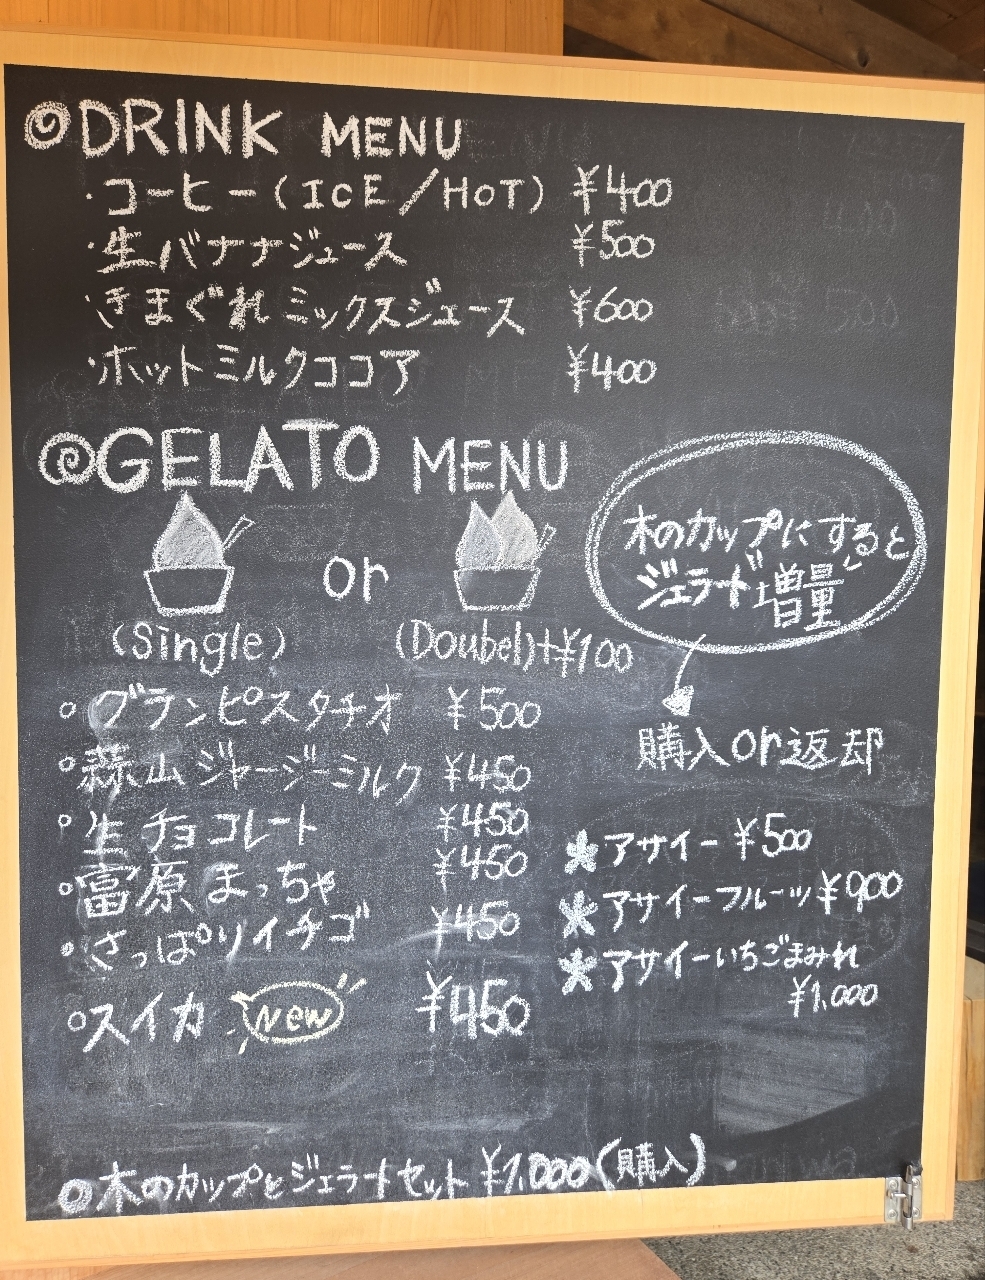 DRINK MENU
・コーヒー(ICE/HOT) ¥400
・生バナナジュース ¥500
・きまぐれミックスジュース ¥600
・ホットミルクココア ¥400
GELATO MENU
or
(Single)
(Doubel)+¥100
木のカップにすると
ジェラード増量
購入or返却
○グランピスタチオ ¥500
○蒜山ジャージーミルク ¥450
○生チョコレート ¥450
○富原まっちゃ ¥450
○さっぱりイチゴ ¥450
○スイカ New ¥450
アサイー ¥500
アサイーフルーツ ¥900
アサイーいちごまみれ
¥1,000
◎木のカップとジェラートセット ¥1,000(購入)